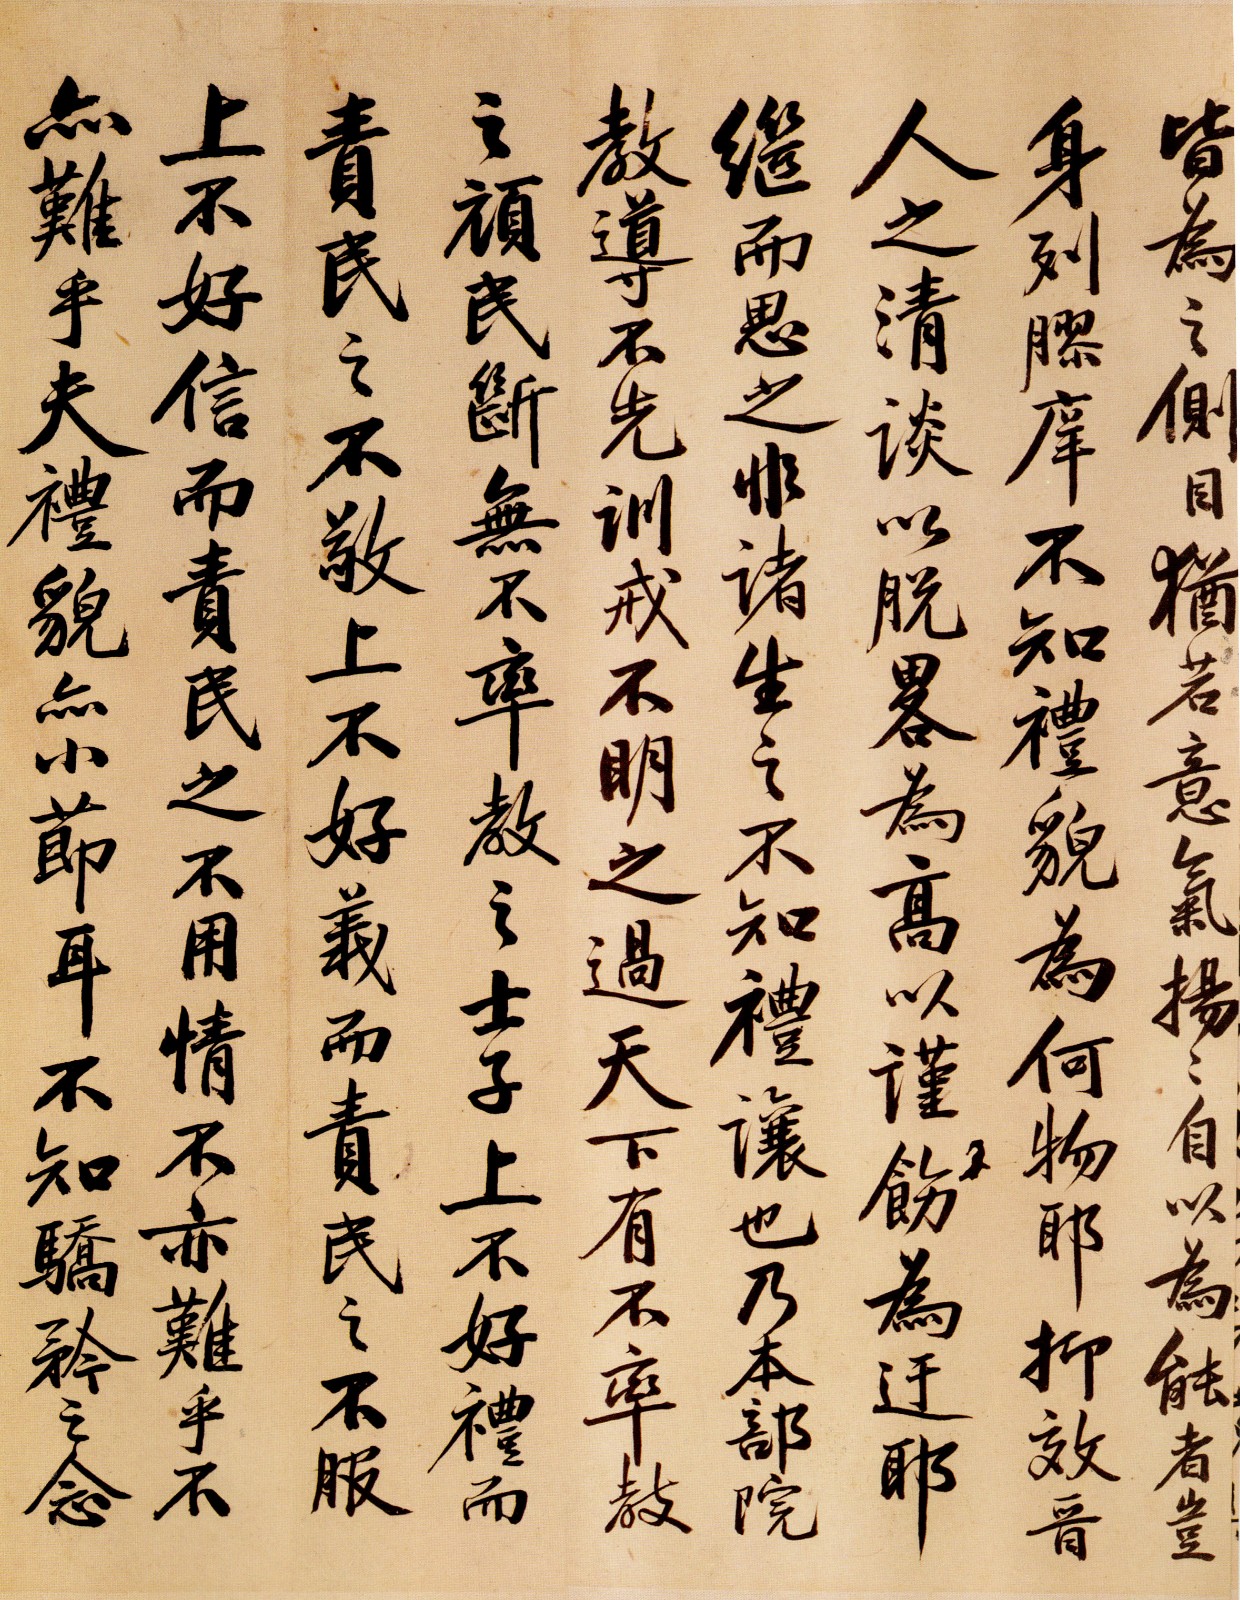 皆為之側目猶若意氣揚〻自以為能者豈
身列膠庠不知禮貌為何物耶抑效晉
人之清談以脫畧為高以謹飭為迂耶
繼而思之非諸生之不知禮讓也乃本部院
教導不先訓戒不明之過天下有不率教
之頑民斷無不率教之士子上不好禮而
責民之不敬上不好義而責民之不服
上不好信而責民之不用情不亦難乎不
亦難乎夫禮貌亦小節耳不知驕矜之念